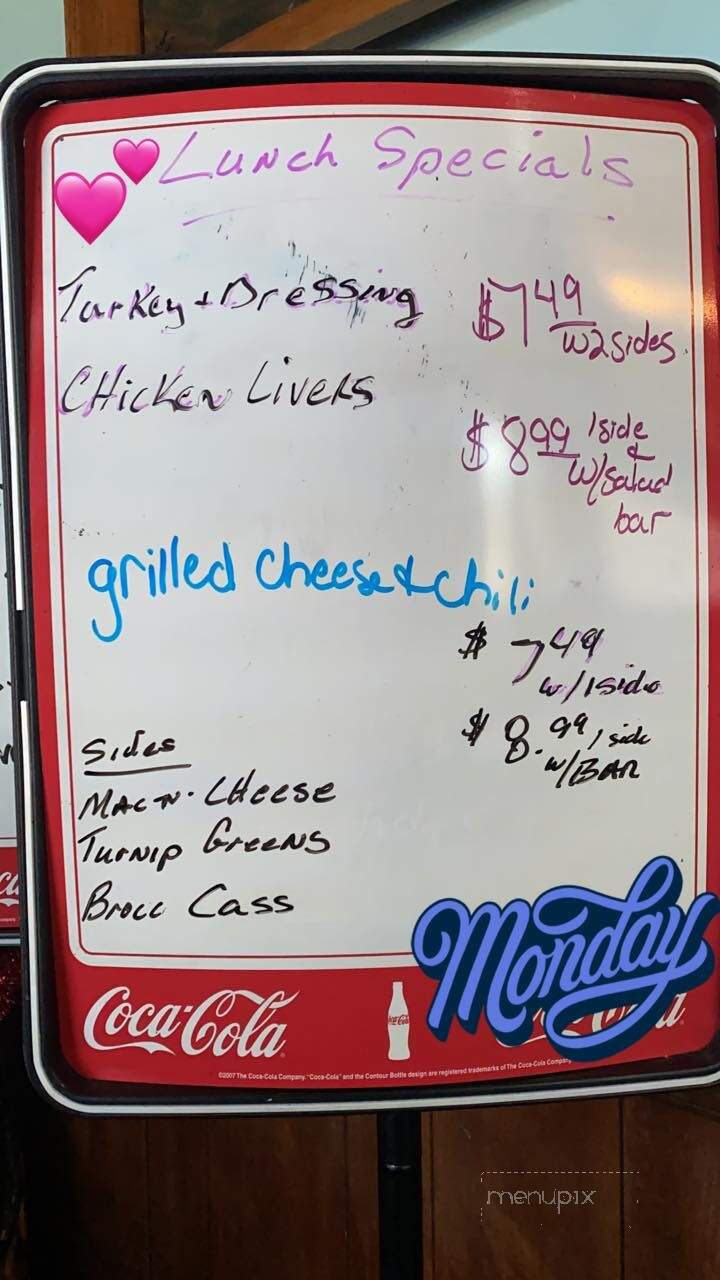 Lunch Specials
Turkey + Dressing $7 49
w 2 sides
Chicken Livers
$8 99 1 side
&
w/salad
bar
grilled cheese & chili
$ 7 49
w/ 1 side
$ 8.99 1 side
w/BAR
Sides
Mac N. Cheese
Turnip Greens
Brocc Cass
Monday
Coca-Cola
©2007 The Coca-Cola Company. "Coca-Cola" and the Contour Bottle design are registered trademarks of The Coca-Cola Company
menupix